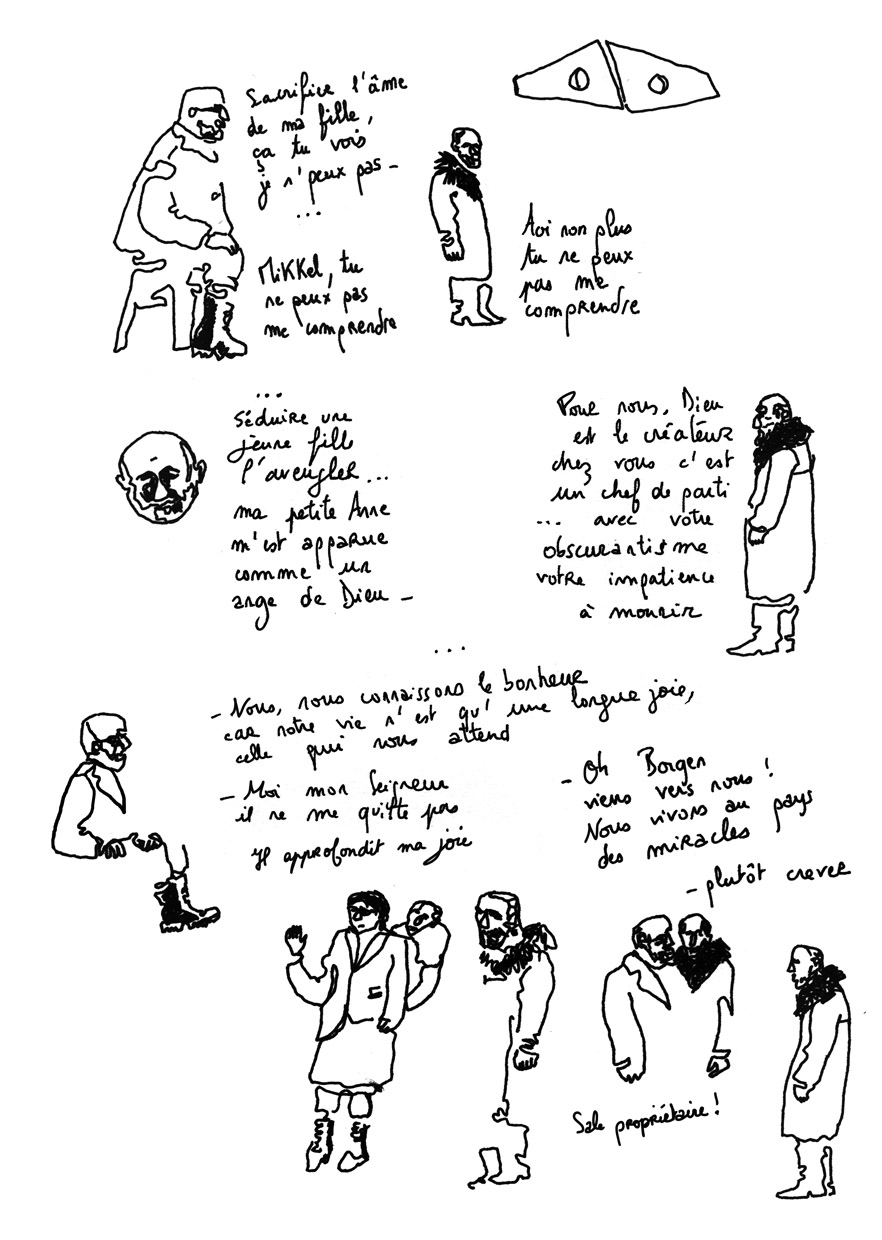 Sacrifice l'âme
de ma fille,
ça tu vois
je n'peux pas –
...
MiKKel, tu
ne peux pas
me comprendre
Toi non plus
tu ne peux
pas me
comprendre
...
Séduire une
jeune fille
l'aveugler...
ma petite Anne
m'est apparue
comme un
ange de Dieu –
Pour nous, Dieu
est le créateur
chez vous c'est
un chef de parti
... avec votre
obscurantisme
votre impatience
à mourir
...
– Nous, nous connaissons le bonheur
car notre vie n'est qu'une longue joie,
celle qui nous attend
– Moi mon Seigneur
il ne me quitte pas
Il approfondit ma joie
– Oh Borgen
viens vers nous !
Nous vivons au pays
des miracles
– plutôt crever
Sale propriétaire !